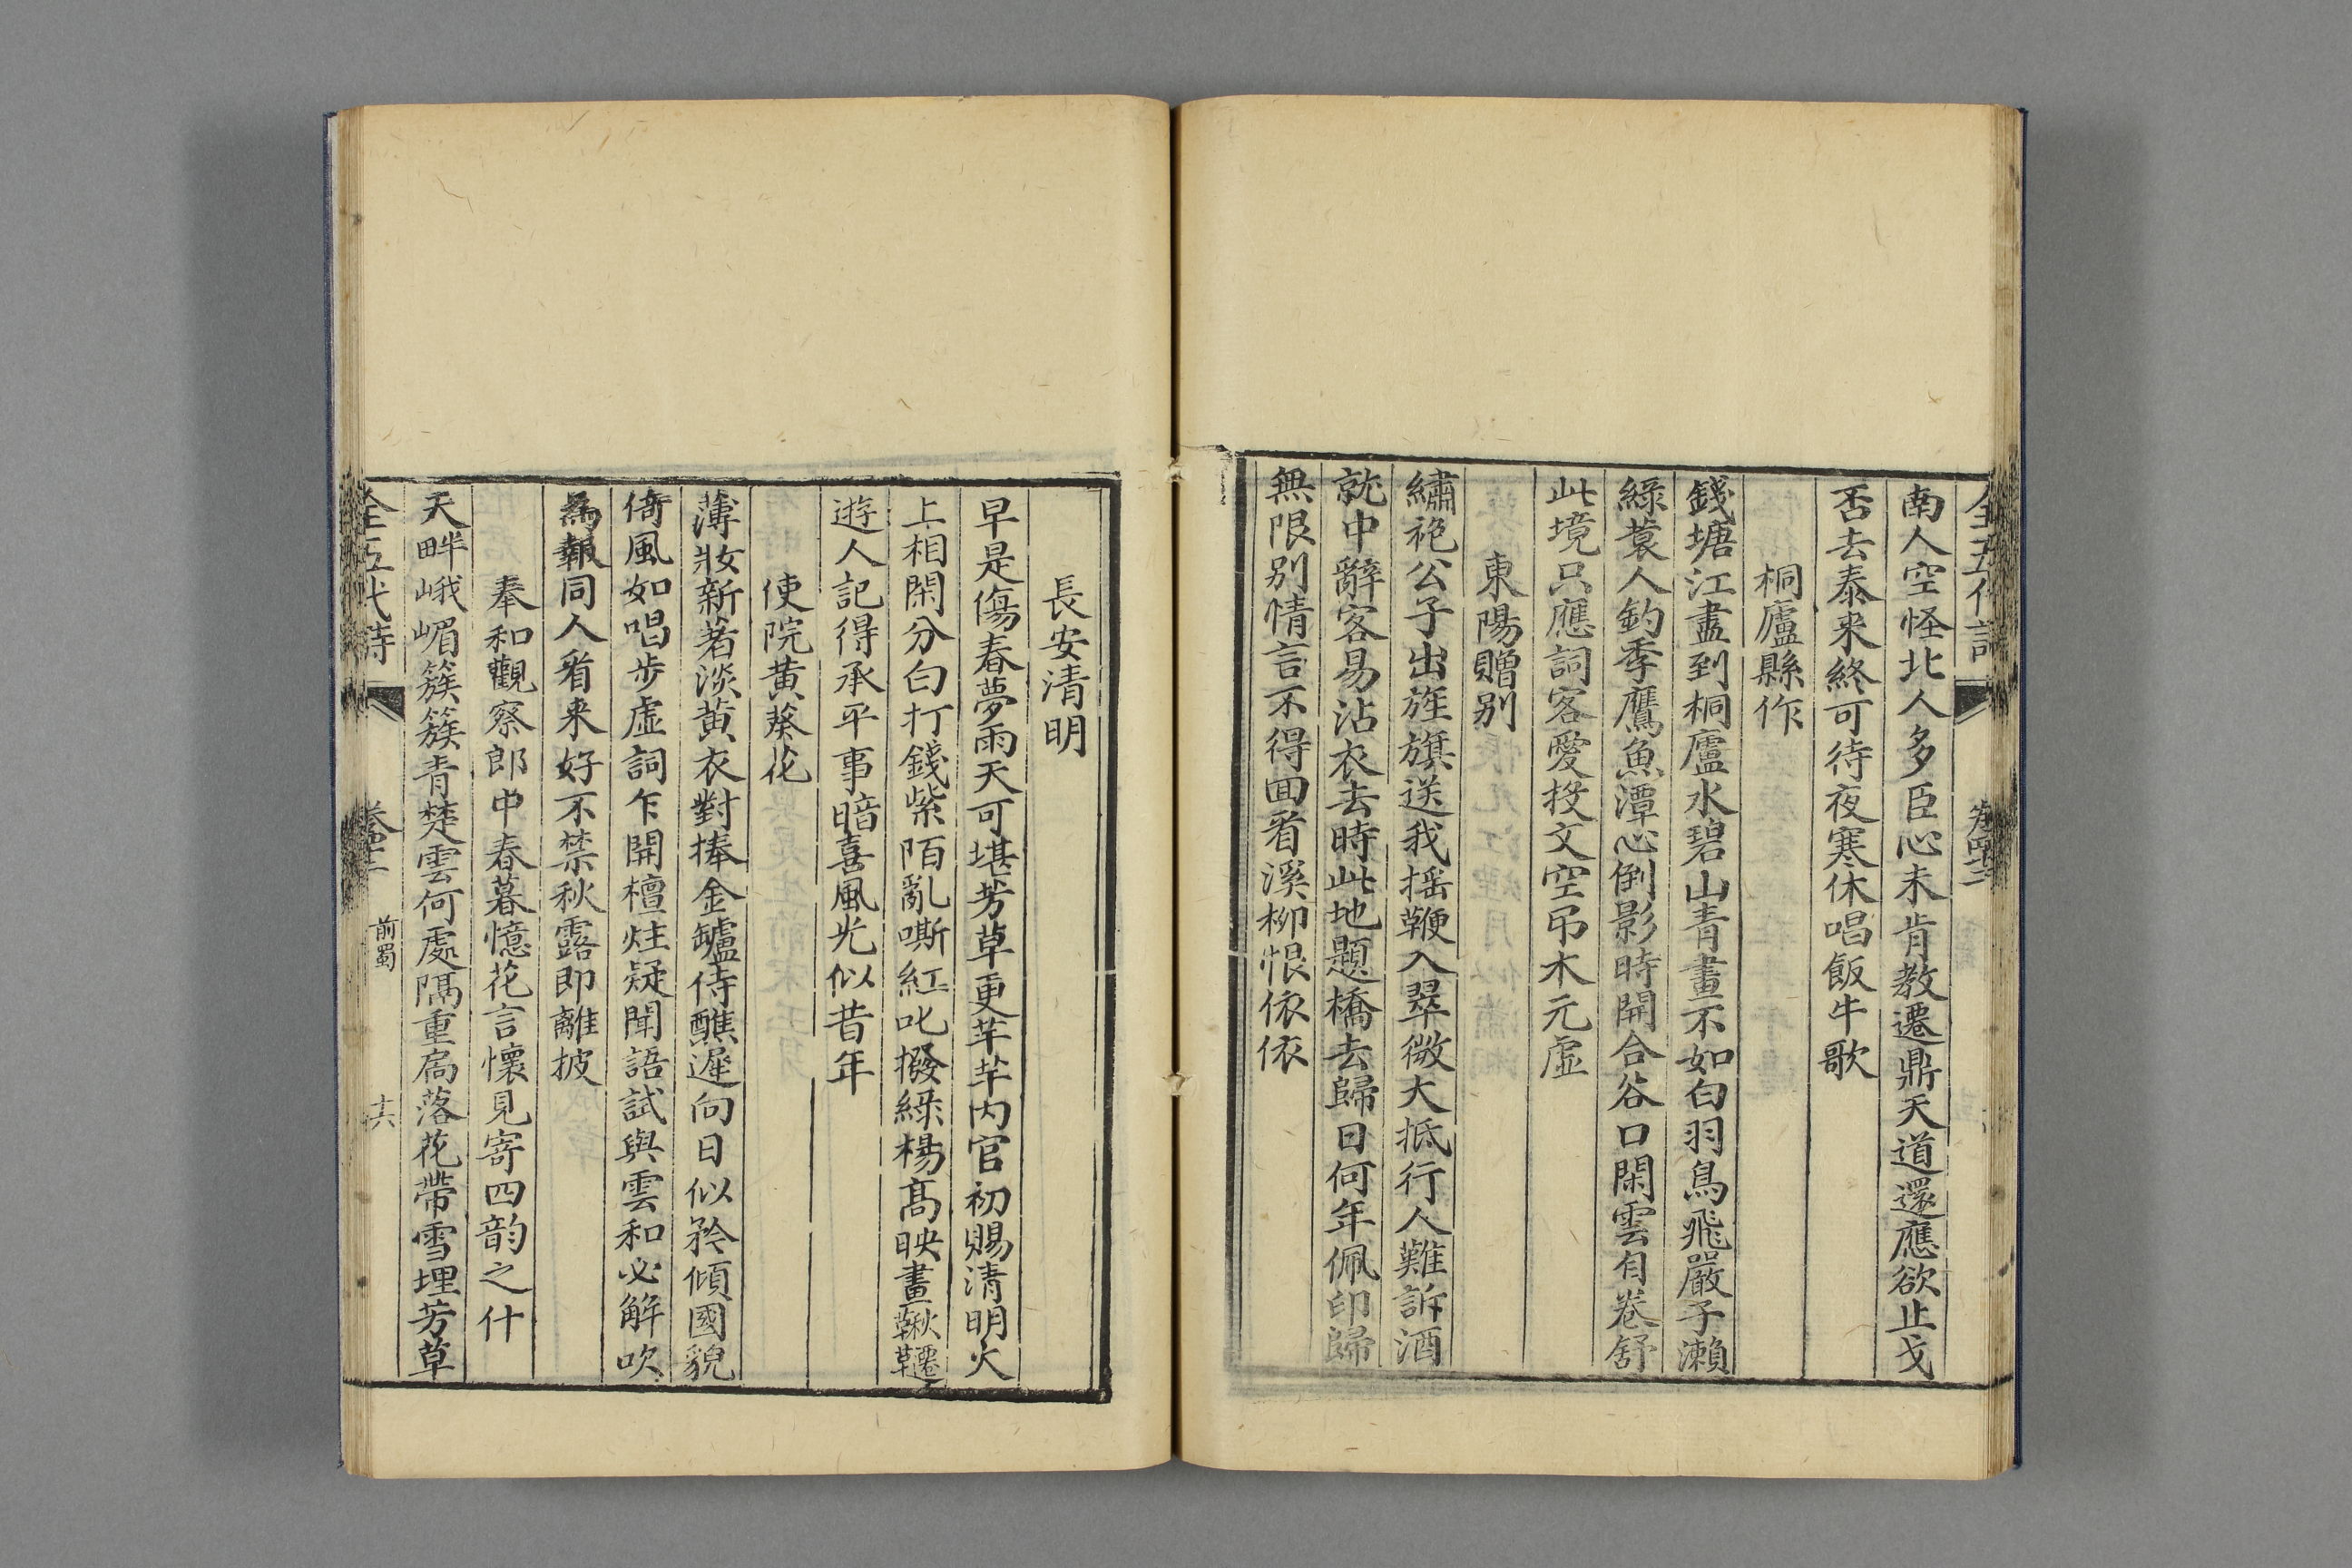 全五代詩
卷四十二
南人空怪北人多臣心未肯教遷鼎天道還應欲止戈
否去泰来終可待夜寒休唱飯牛歌
桐廬縣作
錢塘江盡到桐廬水碧山青畫不如白羽鳥飛嚴子瀨
綠蓑人釣季鷹魚潭心倒影時開合谷口閑雲自卷舒
此境只應詞客愛投文空弔木元虛
東陽贈别
繡袍公子出旌旗送我摇鞭入翠微大抵行人難訴酒
就中辭客易沾衣去時此地題橋去歸日何年佩印歸
無限别情言不得回看溪柳恨依依
長安清明
早是傷春夢雨天可堪芳草更芊芊内官初賜清明火
上相閑分白打錢紫陌亂嘶紅叱撥綠楊髙映畫鞦韆
遊人記得承平事暗喜風光似昔年
使院黄葵花
薄妝新著淡黄衣對捧金罏侍醮遲向日似矜傾國貌
倚風如唱步虛詞乍開檀炷疑聞語試與雲和必解吹
為報同人看来好不禁秋露即離披
奉和觀察郎中春暮憶花言懷見寄四韵之什
天畔峨嵋簇簇青楚雲何處隔重扃落花帶雪埋芳草
全五代詩
卷四十二
前蜀
十六